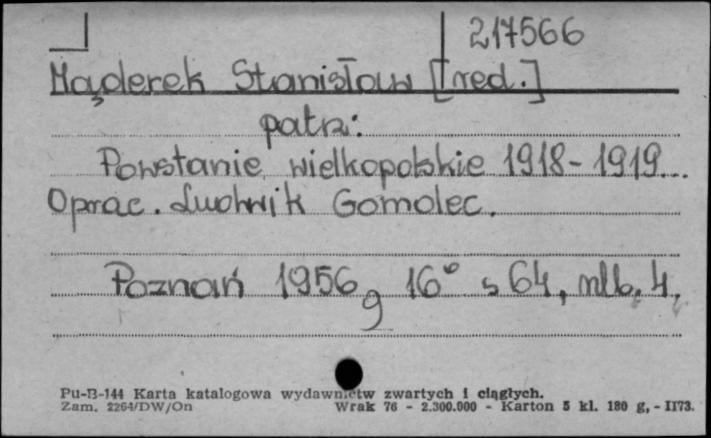 217566
Mąderek Stanisław [red.]
patrz:
Powstanie wielkopolskie 1918-1919...
Oprac. Ludwik Gomolec.
Poznań 1956 g 16° s 64, nlb. 4.
Pu-B-144 Karta katalogowa wydawnictw zwartych i ciągłych.
Zam. 2264/DW/On Wrak 76 - 2.300.000 - Karton 5 kl. 180 g, - II73.